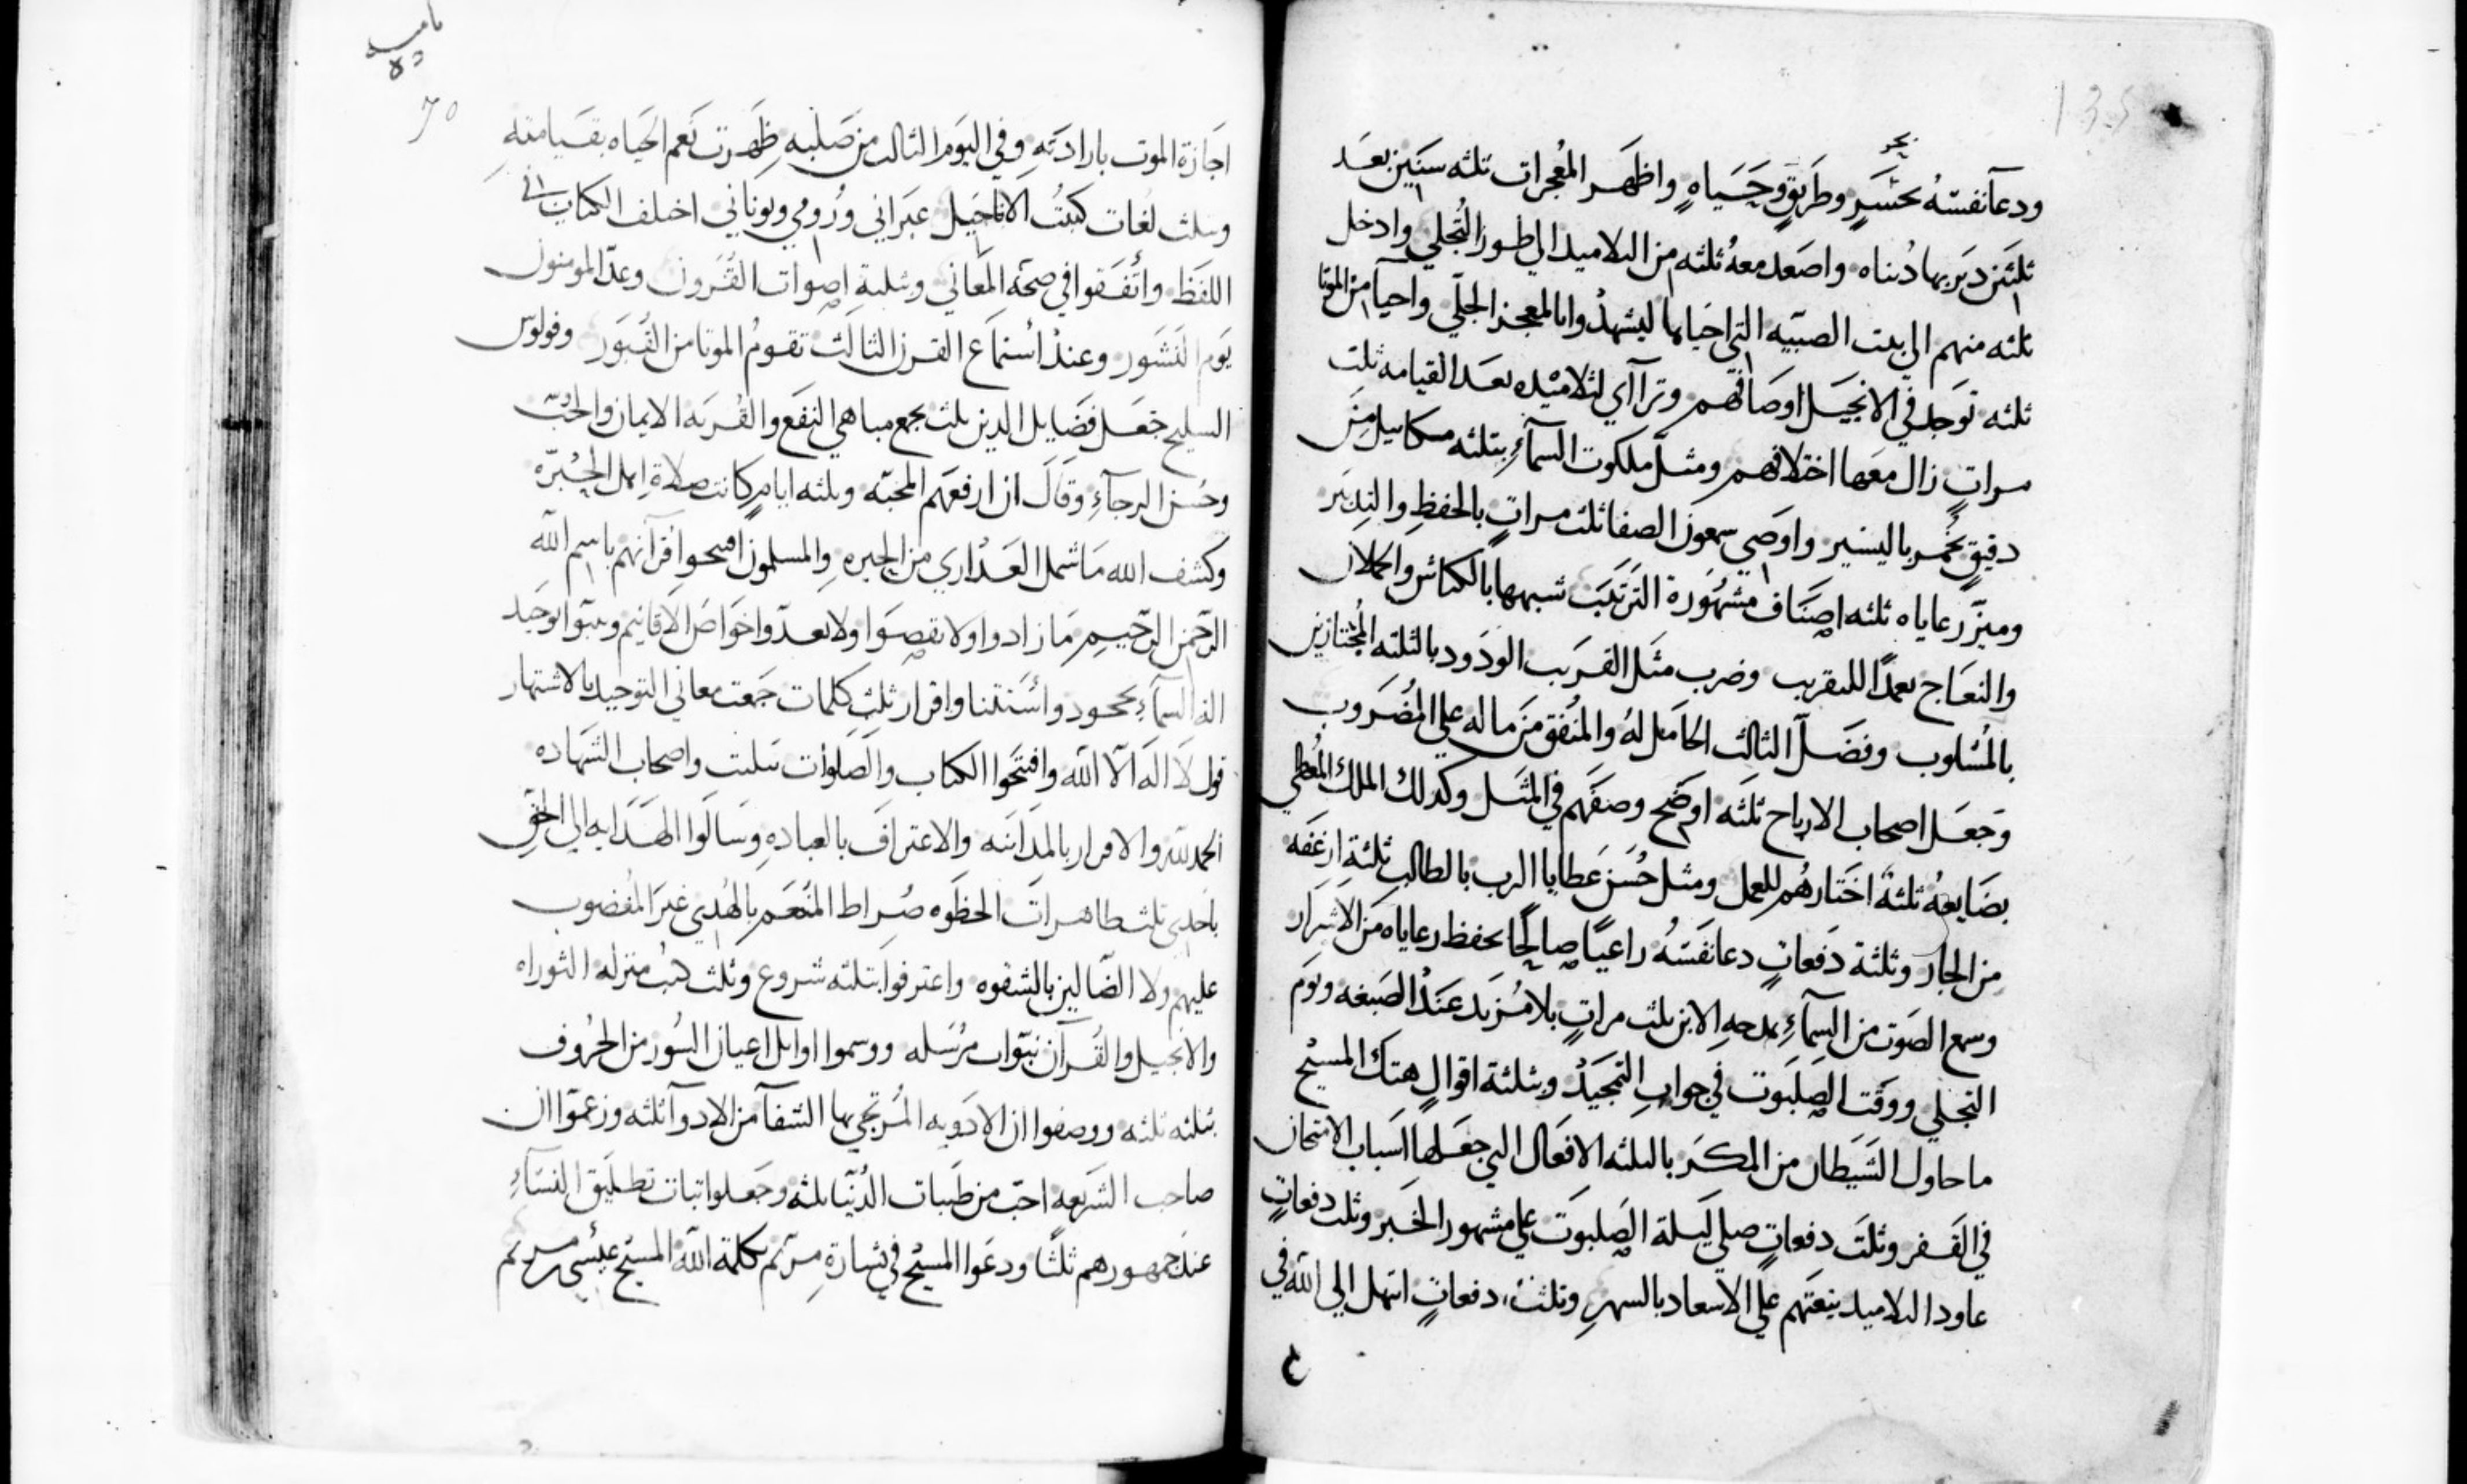 135
بحر
ودعآ نفسَهُ بحَشَرٍ وطريقٍ وحَيَاهٍ واظهَر المُعجزات ثلثه سنين بعَد
ثلثين دَبَر بها دُنياه واصَعَد معهُ ثلثه من التلاميد الي طور التجلي وادخل
ثلثه منهم الي بيت الصبيّه التي احياها ليشهدُوا بالمعجز الجلي واحيا من الموتا
ثلثه توَجد في الانجيَل اوصَافهم وترآاي لتلاميْده بعَد القيامه ثلث
مراتٍ زال معَها اختلافهم ومثلَ ملكوت السمآءِ بثلثه مكاييل مِن
دقيقٍ تخُمر باليسير واوصَي سمعون الصفا ثلث مراتٍ بالحفظِ والتدبير
وميّز رعاياه ثلثه اصنَاف مشهُورة الترتيب شبهها بالكباش والحملان
والنعَاج بعدًا للتقريب وضرب مثَل القريَب الودَود بالثلثه المُجتازين
بالمسُلوب وفضَل الثالث الحامل لهُ والمُنفق من ماله علي المضُروب
وجعَل اصحاب الارباح ثلثَه اوضَح وصفهَم في المثَل وكدلك الملك المُعطي
بضَايعهُ ثلثةً اختارهُم للعمل ومثل حُسَن عَطايا الرب بالطالب ثلثة ارغفَه
من الجار وثلثة دَفعاتٍ دعا نفسَهُ راعيًا صالحًا بحفظ رعاياه من الاشرار
وسمع الصَوت من السمآءِ بمدحهِ الابن ثلث مراتٍ بلا مُزيد عندَ الصَبغه ويَوم
التجلي ووقت الصَلبوت في جوابِ التمجيَد وبثلثة اقوالٍ هتك المسيْح
ما حاول الشيَطان من المكَر بالثلثه الافعَال التي جعَلها اسَباب الامتحان
في القَفر وثلثَ دفعاتٍ صلي ليَلة الصَلبوَت علي مشهور الخَبر وثلث دفعاتٍ
عاود التلاميد ينعتَهم علي الاسعاد بالسهرِ وثلث دفعاتٍ ابتهل الي الله في
اجَازة الموت بارادَتهِ وفي اليوَم الثالث من صَلبهِ ظهرت نعَم الحيَاه بقيَامتهِ
وبثلث لغُات كتبتُ الاناجيَل عبَراني ورُومي ويوناني اختلف الكتاب في
اللفَظ واتُفَقوا في صحَة المعَاني وبثلثةِ اصوات القُرون وعدّ المومنون
يَوم النَشوَر وعندَ اسُتماع القرن الثالث تقومُ الموتا من القُبوَر وفولوس
السليح جعَل فضَايل الدين ثلث بجمع مباهي النفَع والقُربَه الايمان والحُبّ
وحسُن الرجآءِ وقَالَ ان ارفعهَم المحبّه وثلثه ايامٍ كانت صلاةِ اهل الحِيْرّه
وكشف الله مَا شمل العَدْاري من الحيره والمسلمون افتحوا قرآنهم باسم الله
الرّحمن الرّحيم مَا زادوا ولا نقصَوا ولا بعدّوا خواصُ الاقانيم
السمآءِ واقرار ثلثِ كلمات جمَعت معاني التوحيد بالاشتهار
قول لا اله الا الله وافتَحوا الكتاب والصَلوات بثلثتٍ واصحاب الشهَاده
الحمد لله والاقرار بالمدَاينَه والاعترافَ بالعبادهِ وسَالوا الهَدَايه الي الحَقِ
باحدي ثلث طاهراتَ الحظَوه صُراط المُنعَم بالهُدي غيرَ المغُضوب
عليهم ولا الضّالين بالشقوه واعترفوا بثلثه شروع وثلث كتبُ منزله التوراه
والانجيل والقُرآن نبوّات مرُسَله ووسموا اوايل اعيان السُور من الحرُوف
بثلثه ثلثه ووصفوا ان الادَويه المُرتجي بها الشفآ من الادوآ ثلثه وزعمَوا ان
صاحب الشريَعه احبّ من طيَبات الدُنيّا ثلثه وجعَلوا اتبات تطليَق النسَآءِ
عندَ جمهورهم ثلثًا ودعَوا المسيْح في بشارةِ مريَم بكلمة الله المسيْح عيسُي مريم